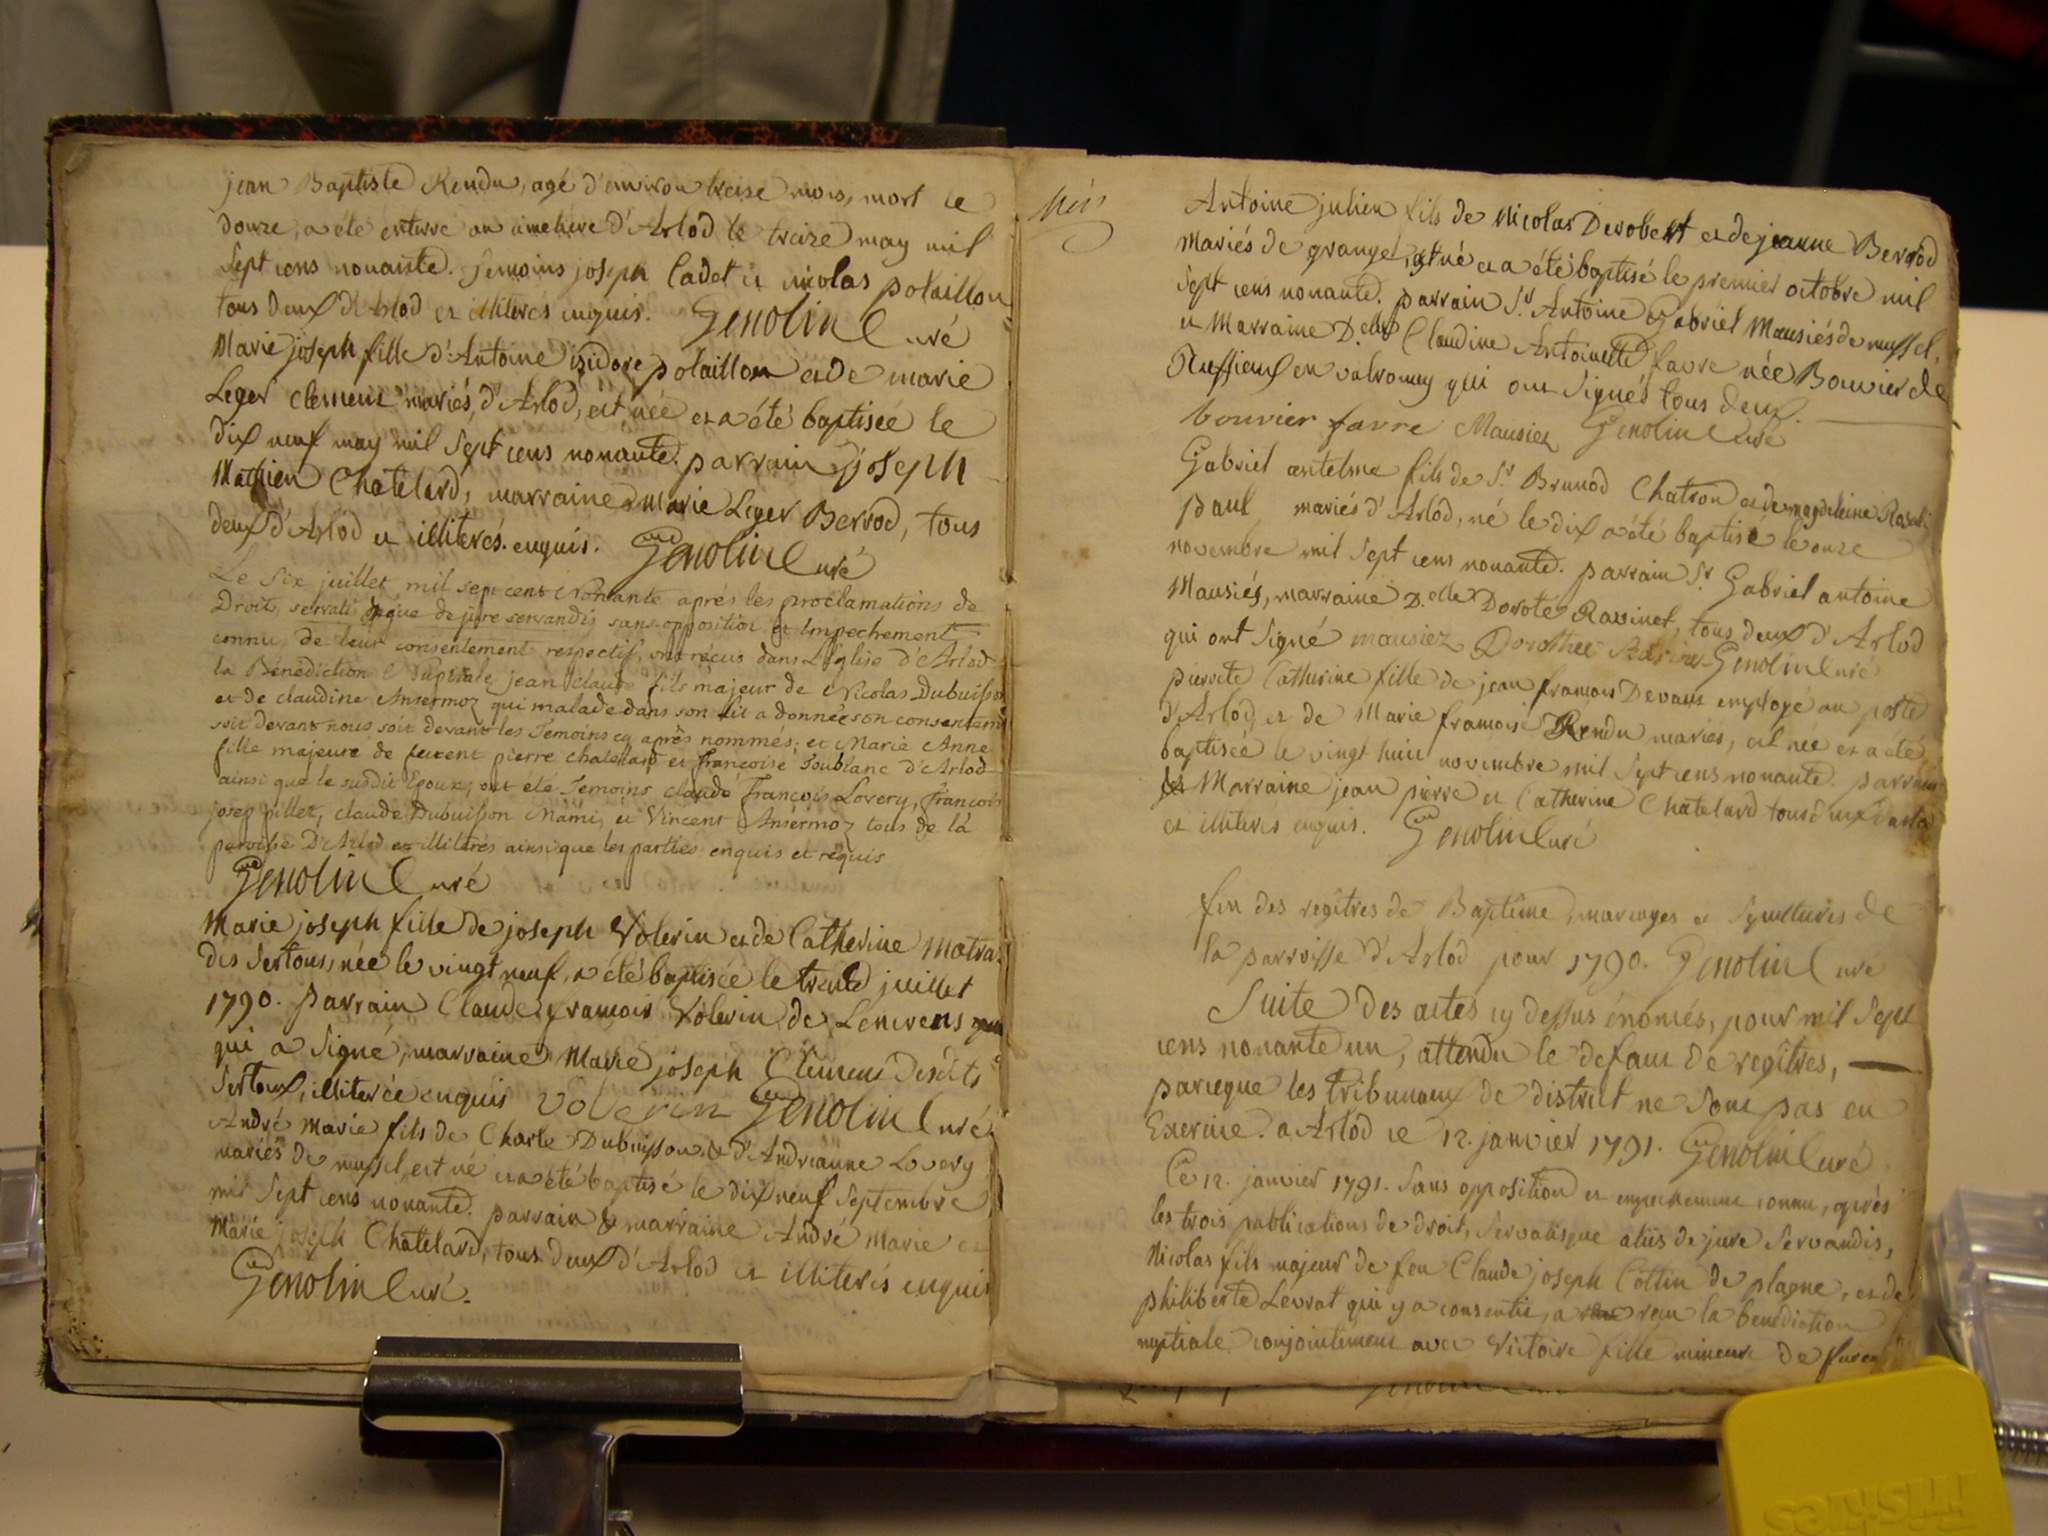 jean Baptiste Rendu, agé d'environ treise mois, mort le
douze, a été enterré au cimetiere d'Arlod le treize may mil
sept cens nonante. Temoins joseph Cadet et nicolas polaillon
tous deux d'Arlod et illiterés enquis. Genolin Curé
Marie joseph fille d'Antoine izidore polaillon et de marie
Leger Clement mariés, d'Arlod, est née et a été baptisée le
dix neuf may mil sept cens nonante. parrain joseph
Mathieu Chatelard, marraine marie Leger Berrod, tous
deux d'Arlod et illiterés. enquis. Genolin Curé
Le Six juillet mil sept cent Nonante après les proclamations de
Droit, servatis que de jure servandis sans opposition et Impechement
connu, de leur consentement respectif, ont reçus dans L'église d'Arlod
la Bénédiction Nuptiale jean claude fils majeur de Nicolas Dubuisson
et de claudine Ansermoz qui malade dans son lit a donnée son consentem
soit devant nous, soit devant les Temoins cy après nommés; et Marie Anne
fille majeure de feu pierre chatellard et françoise Joublanc d'Arlod
ainsi que le susdit Epoux; ont été Temoins claude François Lovery, François
josep pillet, claude Dubuisson Mami, et Vincent Ansermoz tous de la
paroisse D'Arlod et illiterés ainsi que les parties enquis et requis
Genolin Curé
Marie joseph fille de joseph Volerin et de Catherine Matra
des Sertous, née le vingt neuf, a été baptisée le trente juillet
1790. parrain Claude françois Volerin de Lencrens
qui a signé, marraine Marie joseph Clemens desdits
Sertoux, illiterée enquis volerin Genolin Curé
André Marie fils de Charle Dubuisson & d'Andreanne Lovery
mariés de mussel, est né et a été baptisé le dix neuf Septembre
mil sept cens nonante. parrain & marraine André Marie et
Marie joseph Chatelard, tous deux d'Arlod et illiterés enquis
Genolin Curé.
Antoine julien fils de Nicolas Derobert et de jeanne Berrod
Mariés de grange, est né et a été baptisé le premier octobre mil
sept cens nonante. parrain Sr Antoine Gabriel Mausiés de mussel,
et Marraine D.elle Claudine Antoinette favre née Bouvier de
Ruffieux en valromey qui ont signés tous deux.
bouvier favre Mausiez Genolin Curé
Gabriel antelme fils de Sr Brunod Chatron et de magdeleine
paul mariés d'Arlod, né le dix a été baptisé le onze
novembre mil sept cens nonante. parrain Sr Gabriel antoine
Mausiés, marraine D.elle Dorote Ravinet, tous deux d'Arlod
qui ont signé mausiez Dorothee Genolin Curé
pierrete Catherine fille de jean francois Devaux employé au poste
d'Arlod, et de Marie francoise Rendu mariés, est née et a été
baptisée le vingt huit novembre mil sept cens nonante. parrain
et Marraine jean pierre et Catherine Chatelard tous deux d'arlod
et illiterés enquis. Genolin Curé
fin des regîtres de Baptême, mariages et Sepultures de
la parroisse d'Arlod pour 1790. Genolin Curé
Suite des actes cy dessus énoncés, pour mil sept
cens nonante un, attendu le defaut de regîtres,
parceque les tribunaux de district ne sont pas en
Exercice. a Arlod ce 12. janvier 1791. Genolin Curé
Ce 12. janvier 1791. sans opposition et empechement connu, après
les trois publications de droit, servatisque aliis de jure servandis,
Nicolas fils majeur de feu Claude joseph Cottin de plagne, et de
philiberte Levrat qui y a consentie, a recu la benediction
nuptiale conjointement avec Victoire fille mineure de